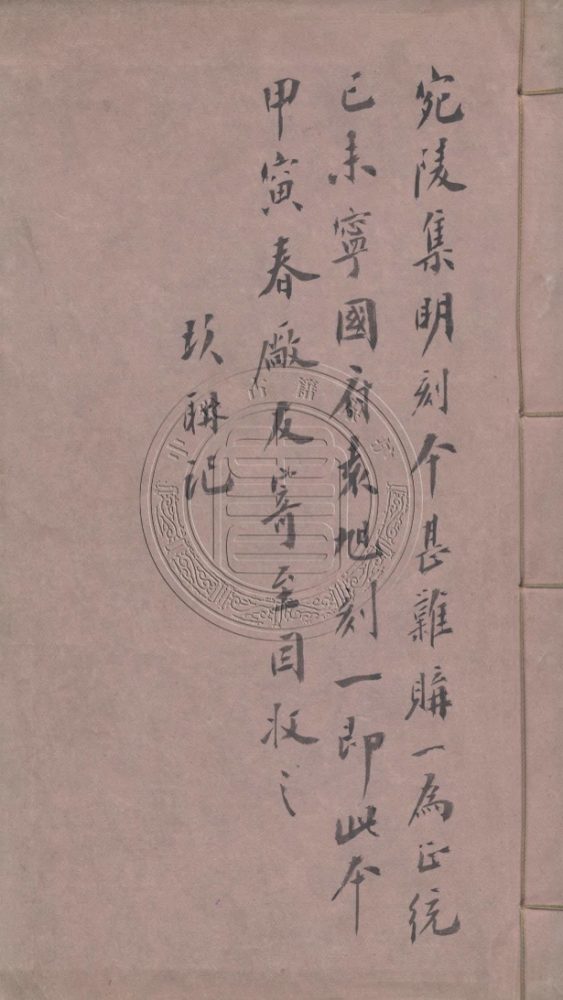 宛陵集明刻今甚難購一為正統
己未寧國府袁旭刻一即此本
甲寅春廠友寄至因收之
玖聊記